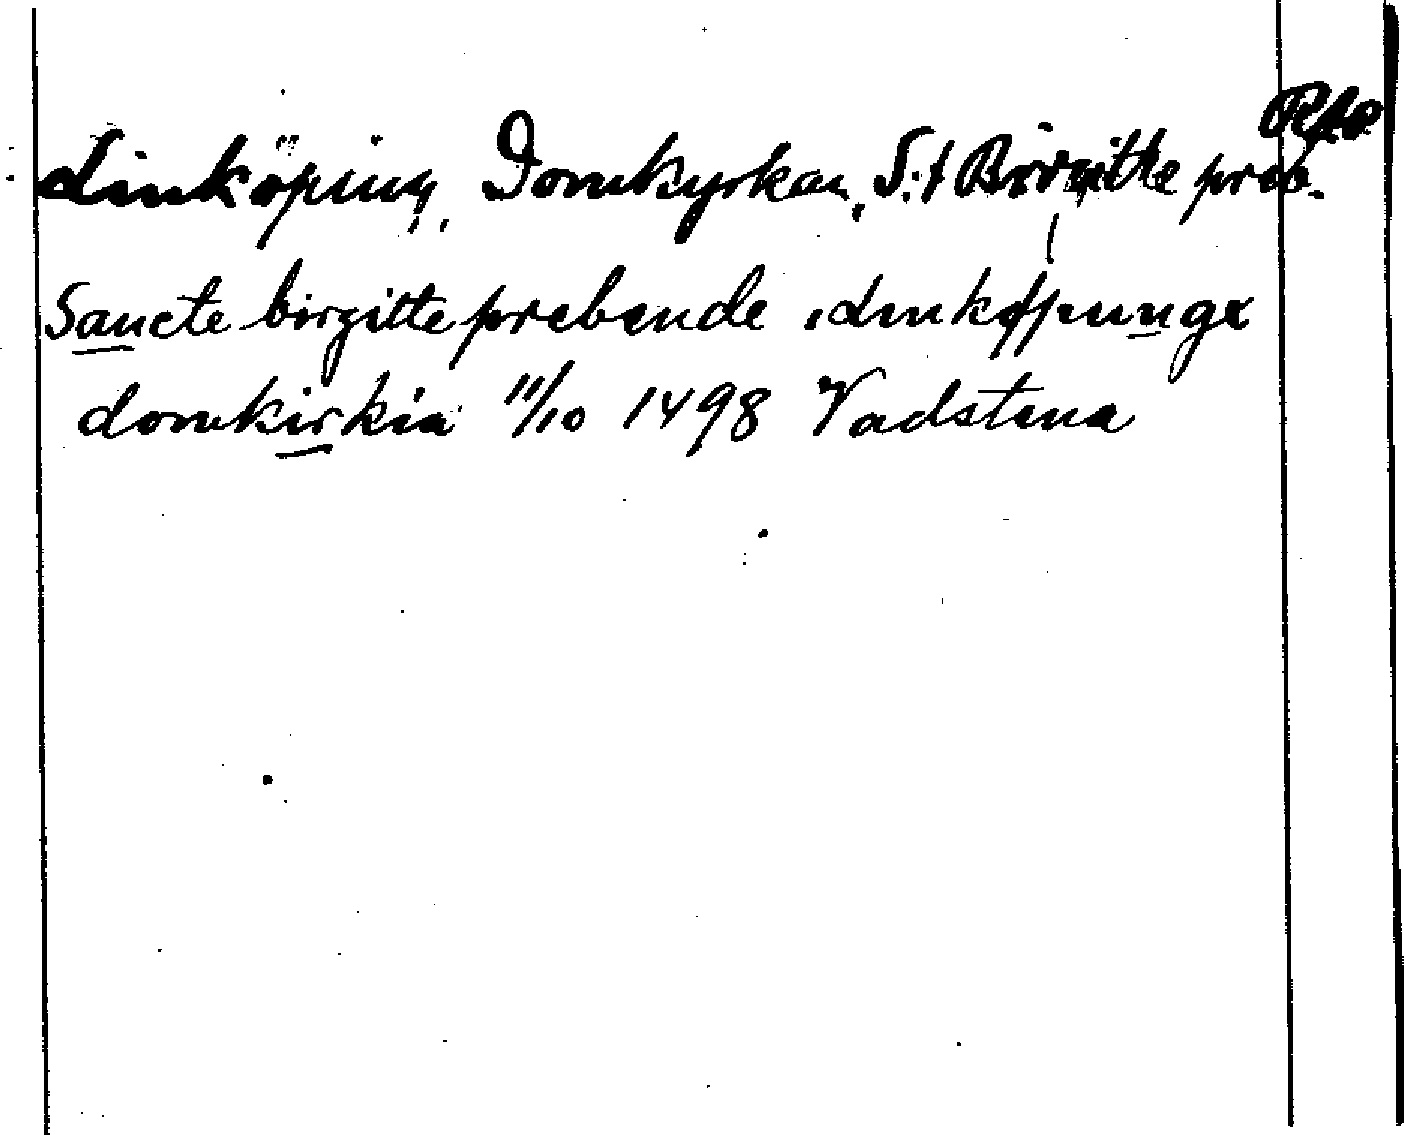 RAp
Linköping, Domkyrkan, S:t Birgitte preb.
Sancte birgitte prebende i linkøpunge
domkirkia 11/10 1498 Vadstena